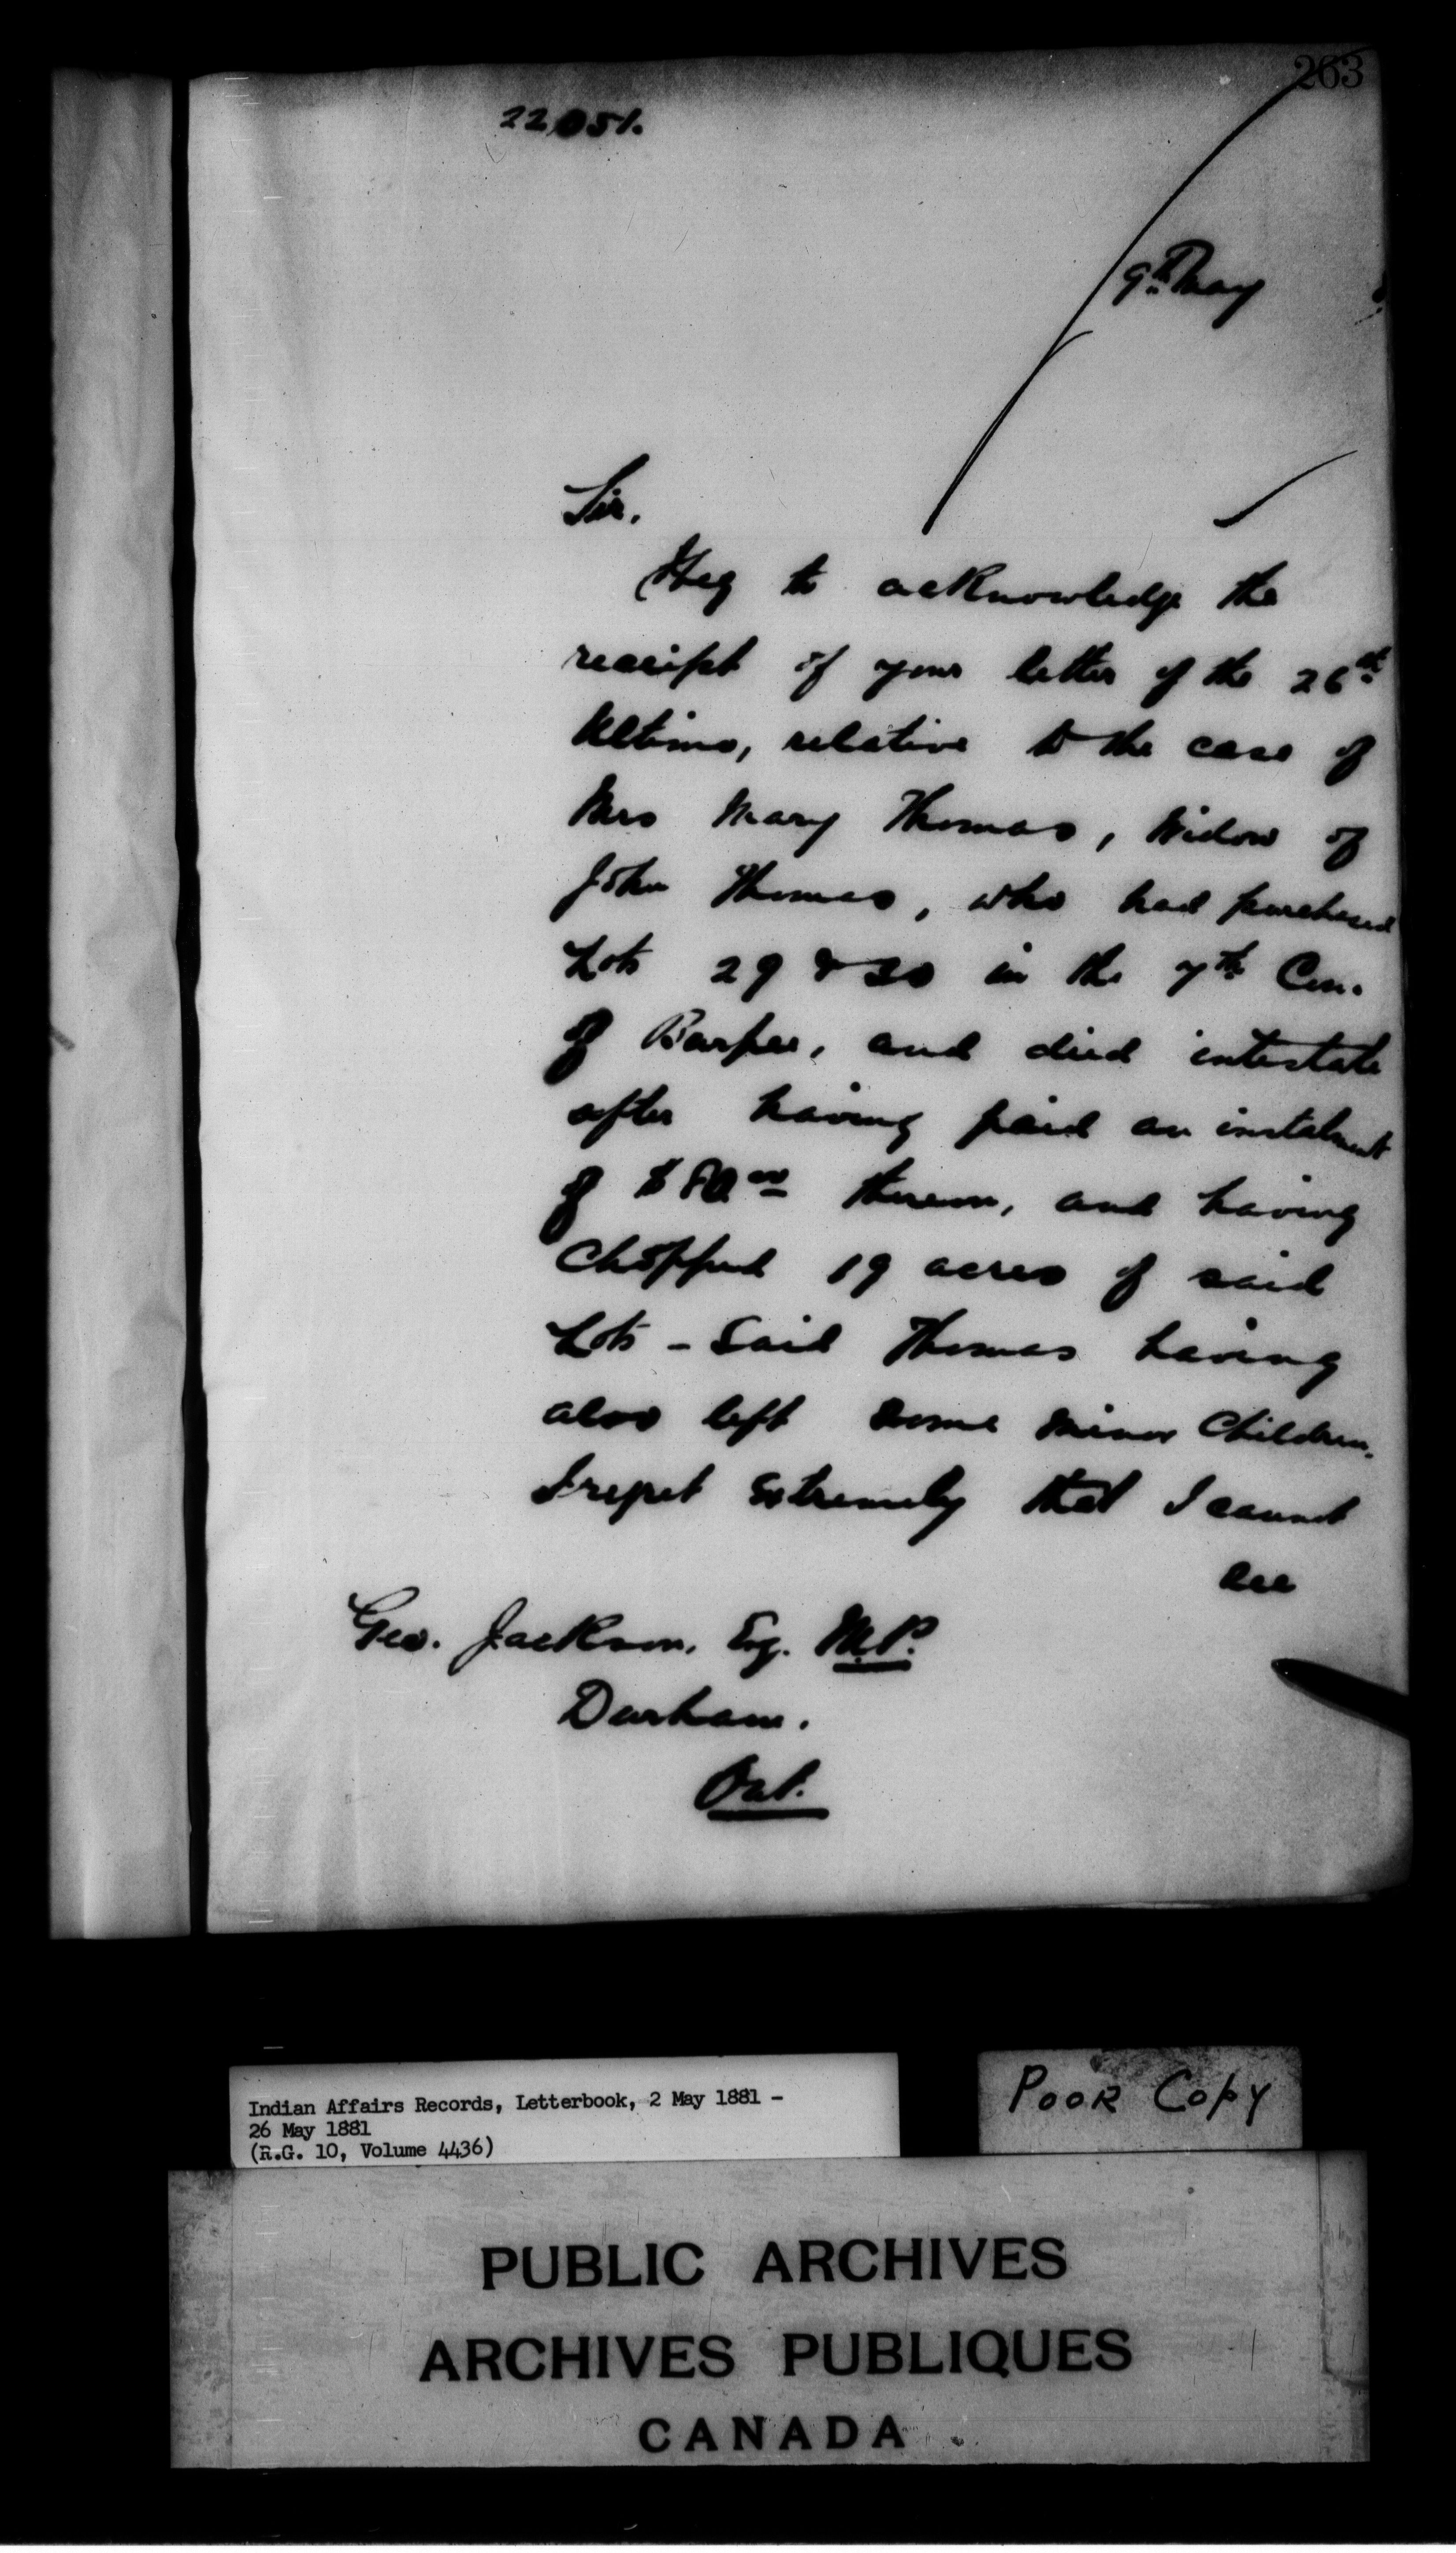 263
22051.
9th May
Sir,
I beg to acknowledge the
receipt of your letter of the 26th
Ultimo, relative to the case of
Mrs Mary Thomas, Widow of
John Thomas, who had purchased
Lots 29 & 30 in the 7th Con.
of and died intestate
after having paid an instalment
of thereon, and having
Chopped 19 acres of said
Lots - Said Thomas having
also left some minor Children.
I regret Extremely that I cannot
see
Geo. Jackson, Esq. M.P.
Durham.
Ont.
Indian Affairs Records, Letterbook, 2 May 1881 -
26 May 1881
(R.G. 10, Volume 4436)
Poor Copy
PUBLIC ARCHIVES
ARCHIVES PUBLIQUES
CANADA